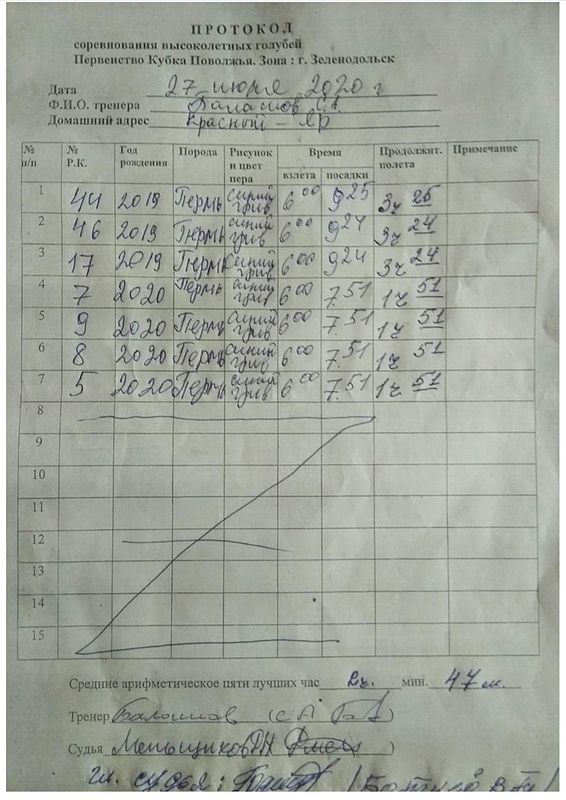 ПРОТОКОЛ
соревнования высоколетных голубей
Первенство Кубка Поволжья. Зона : г. Зеленодольск
Дата 27 июня 2020 г
Ф.И.О. тренера Балашов С.А.
Домашний адрес Красный - Яр
№ п/п № Р.К. Год рождения Порода Рисунок и цвет пера Время взлета посадки Продолжит. полета Примечание
1 44 2019 Пермь синий грив 6 00 9 25 3ч 25
2 46 2019 Пермь синий грив 6 00 9 24 3ч 24
3 17 2019 Пермь синий грив 6 00 9 24 3ч 24
4 7 2020 Пермь синий грив 6 00 7.51 1ч 51
5 9 2020 Пермь синий грив 6 00 7.51 1ч 51
6 8 2020 Пермь синий грив 6 00 7.51 1ч 51
7 5 2020 Пермь синий грив 6 00 7.51 1ч 51
8
9
10
11
12
13
14
15
Средние арифметическое пяти лучших час 2ч. мин. 47 м.
Тренер Балашов
Судья Меньщиков
гл. судья :